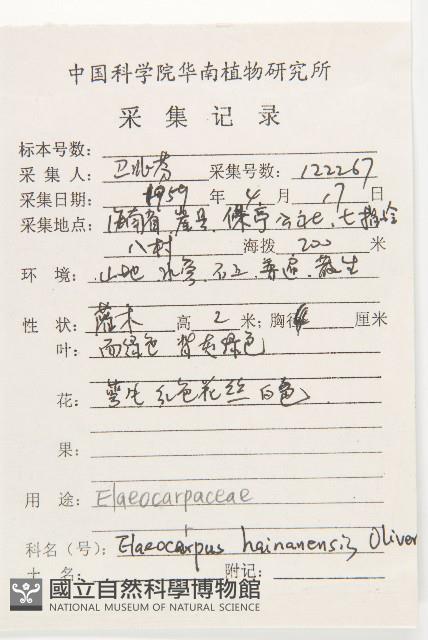 中国科学院华南植物研究所
采集记录
标本号数:
采集人: 卫兆芬 采集号数: 122267
采集日期: 1959 年 4 月 17 日
采集地点: 海南省, 崖县, 保亭公社, 七指岭
八村 海拨 200 米
环 境: 山地 水旁 普遍 散生
性 状: 灌木 高 2 米; 胸径 厘米
叶: 面绿色 背灰绿色
花: 红色花丝白色
果:
用 途: Elaeocarpaceae
科名(号): Elaeocarpus hainanensis Oliver
土 名: 附记:
國立自然科學博物館
NATIONAL MUSEUM OF NATURAL SCIENCE